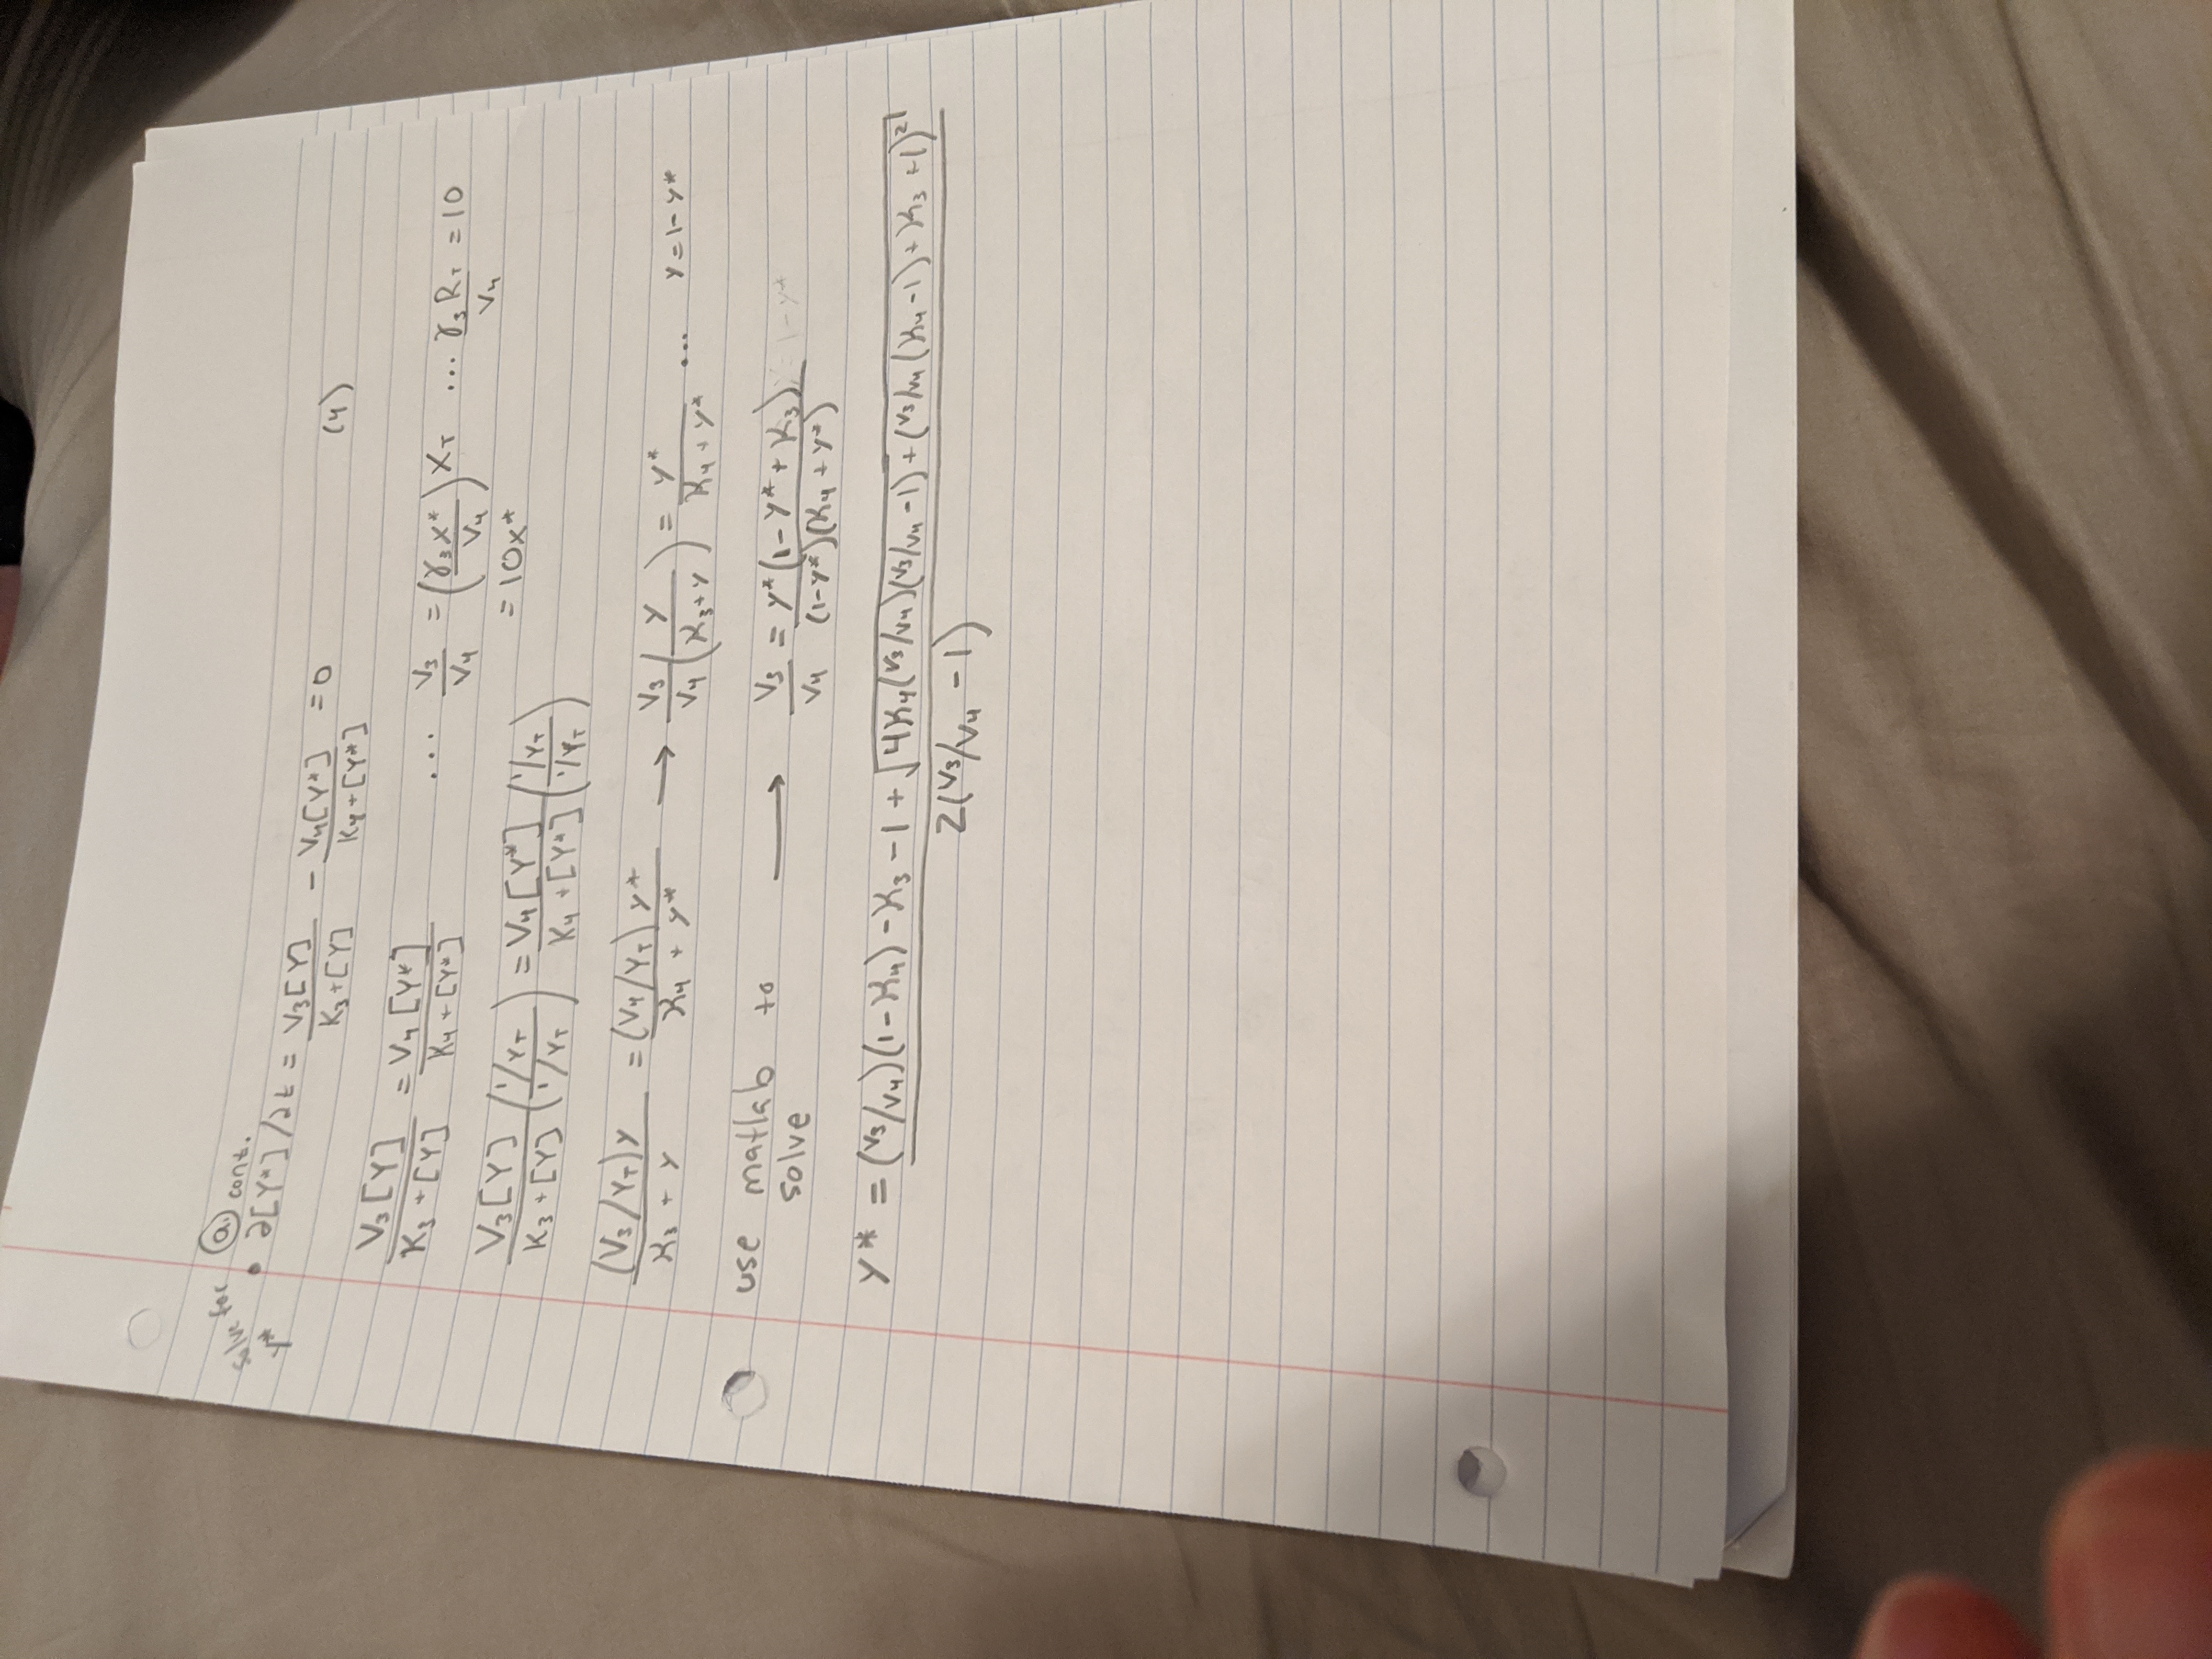 solve for
Y*
(a.) cont.
• ∂[Y*]/∂t = V₃[Y] / (K₃+[Y]) - V₄[Y*] / (K₄+[Y*]) = 0 (4)
V₃[Y] / (K₃+[Y]) = V₄[Y*] / (K₄+[Y*]) ... V₃/V₄ = (γ₃x*/V₄) X_T ... γ₃R_T/V₄ = 10
= 10x*
V₃[Y] / (K₃+[Y]) ((1/Y_T)/(1/Y_T)) = V₄[Y*] / (K₄+[Y*]) ((1/Y_T)/(1/Y_T))
(V₃/Y_T)y / (κ₃ + y) = (V₄/Y_T) y* / (κ₄ + y*) → V₃/V₄ (y / (κ₃+y)) = y* / (κ₄+y*) ... y = 1-y*
use matlab to solve → V₃/V₄ = y*(1-y*+κ₃) / ((1-y*)(κ₄+y*)) 1-y*
y* = ((V₃/V₄)(1-κ₄) - κ₃ - 1 + √(4κ₄(V₃/V₄)(V₃/V₄-1) + (V₃/V₄(κ₄-1)+κ₃+1)²)) / (2(V₃/V₄ - 1))